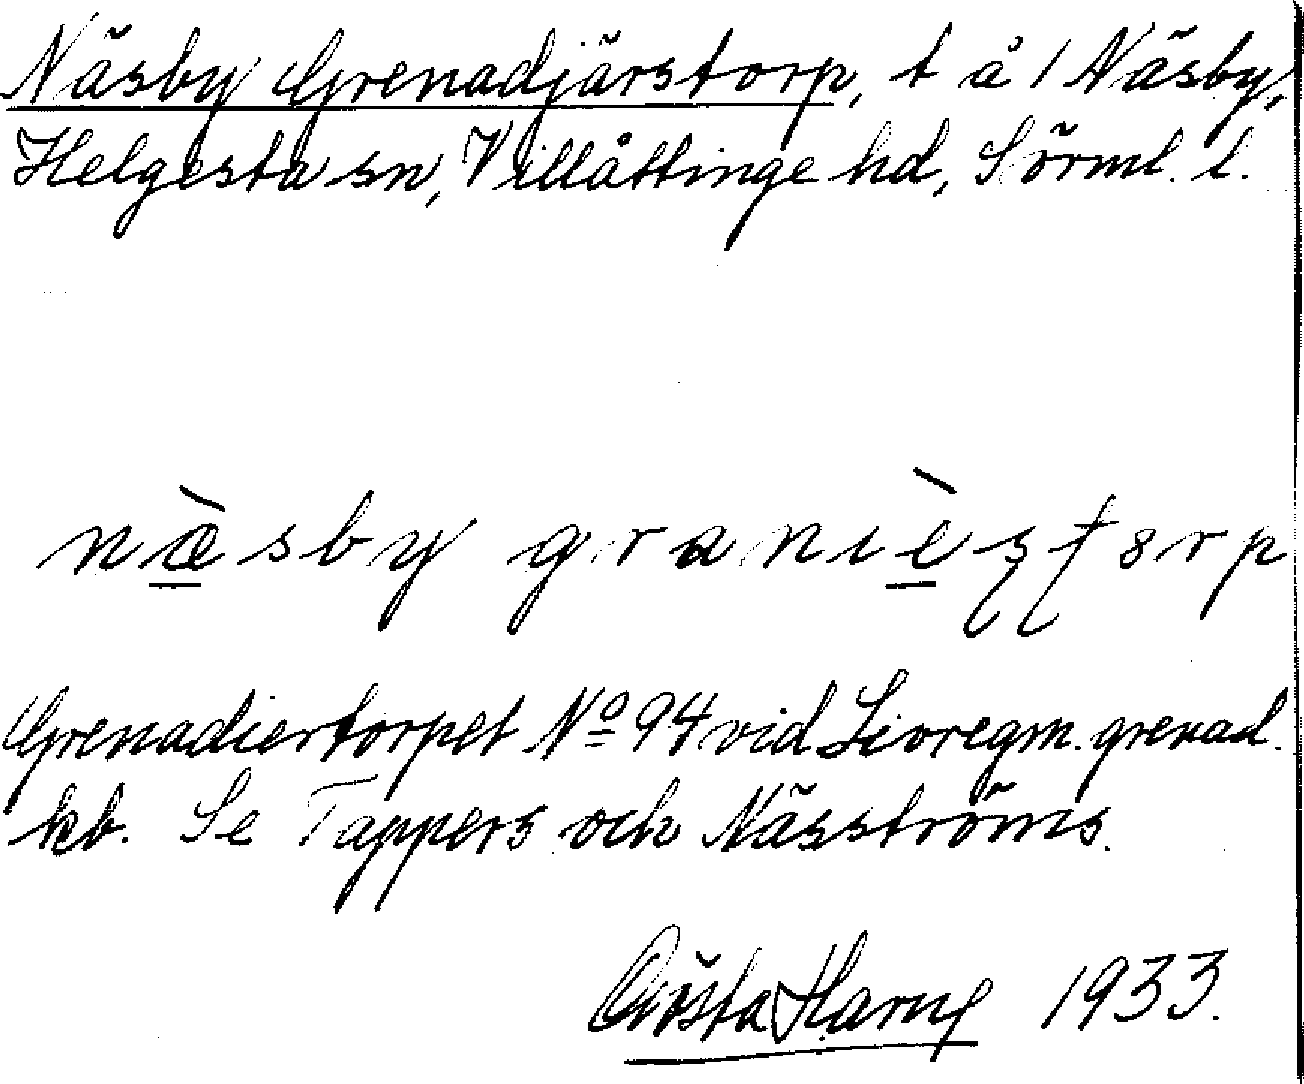 Näsby Grenadjärstorp, t å 1 Näsby,
Helgesta sn, Villåttinge hd, Sörml. l.
næ̀sby granıèʂʈ8rp
Grenadiertorpet No 94 vid Livregm. grenad.
kb. Se Tappers och Näsströms.
Gösta Harug 1933.